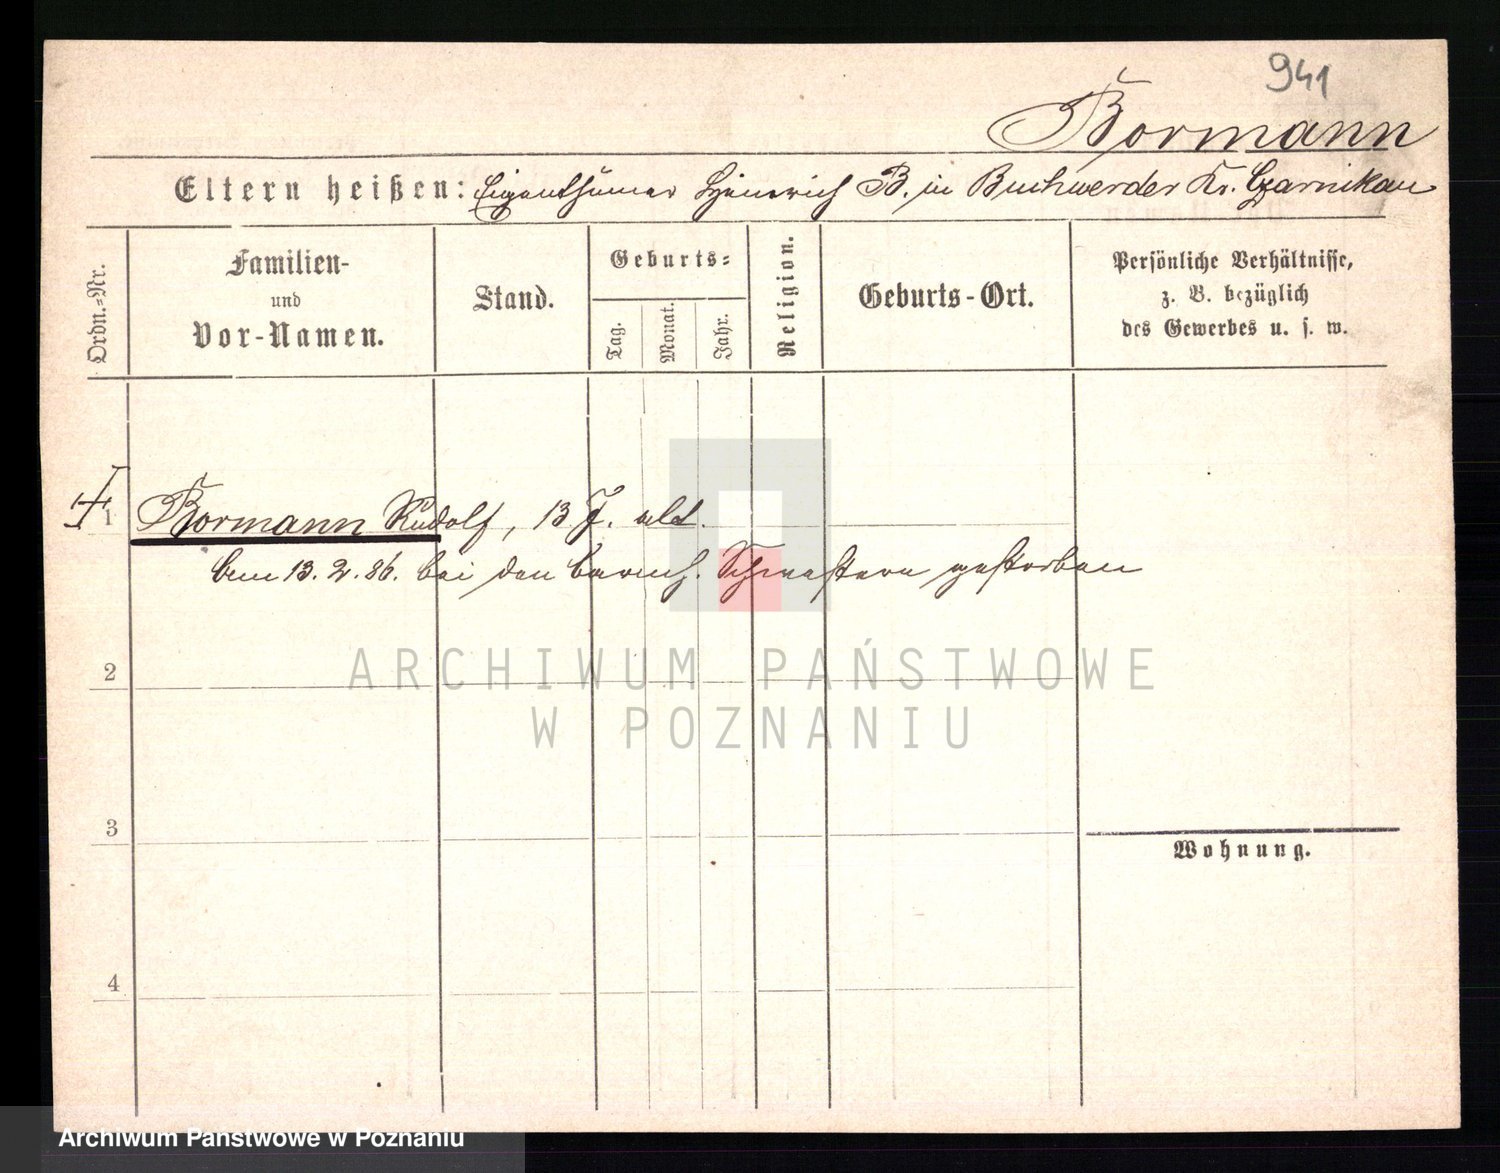 941
Bormann
Eltern heißen: Eigenthümer Heinrich B. in Buchwerder Kr. Czarnikau
Ordn.=Nr.
Familien-
und
Vor-Namen.
Stand.
Geburts=
Tag.
Monat.
Jahr.
Religion.
Geburts-Ort.
Persönliche Verhältnisse,
z. B. bezüglich
des Gewerbes u. s. w.
1 Bormann Rudolf, 13 J. alt.
13. 2. 86. bei den barmh. Schwestern gestorben
2
3
Wohnung.
4
ARCHIWUM PAŃSTWOWE
W POZNANIU
Archiwum Państwowe w Poznaniu